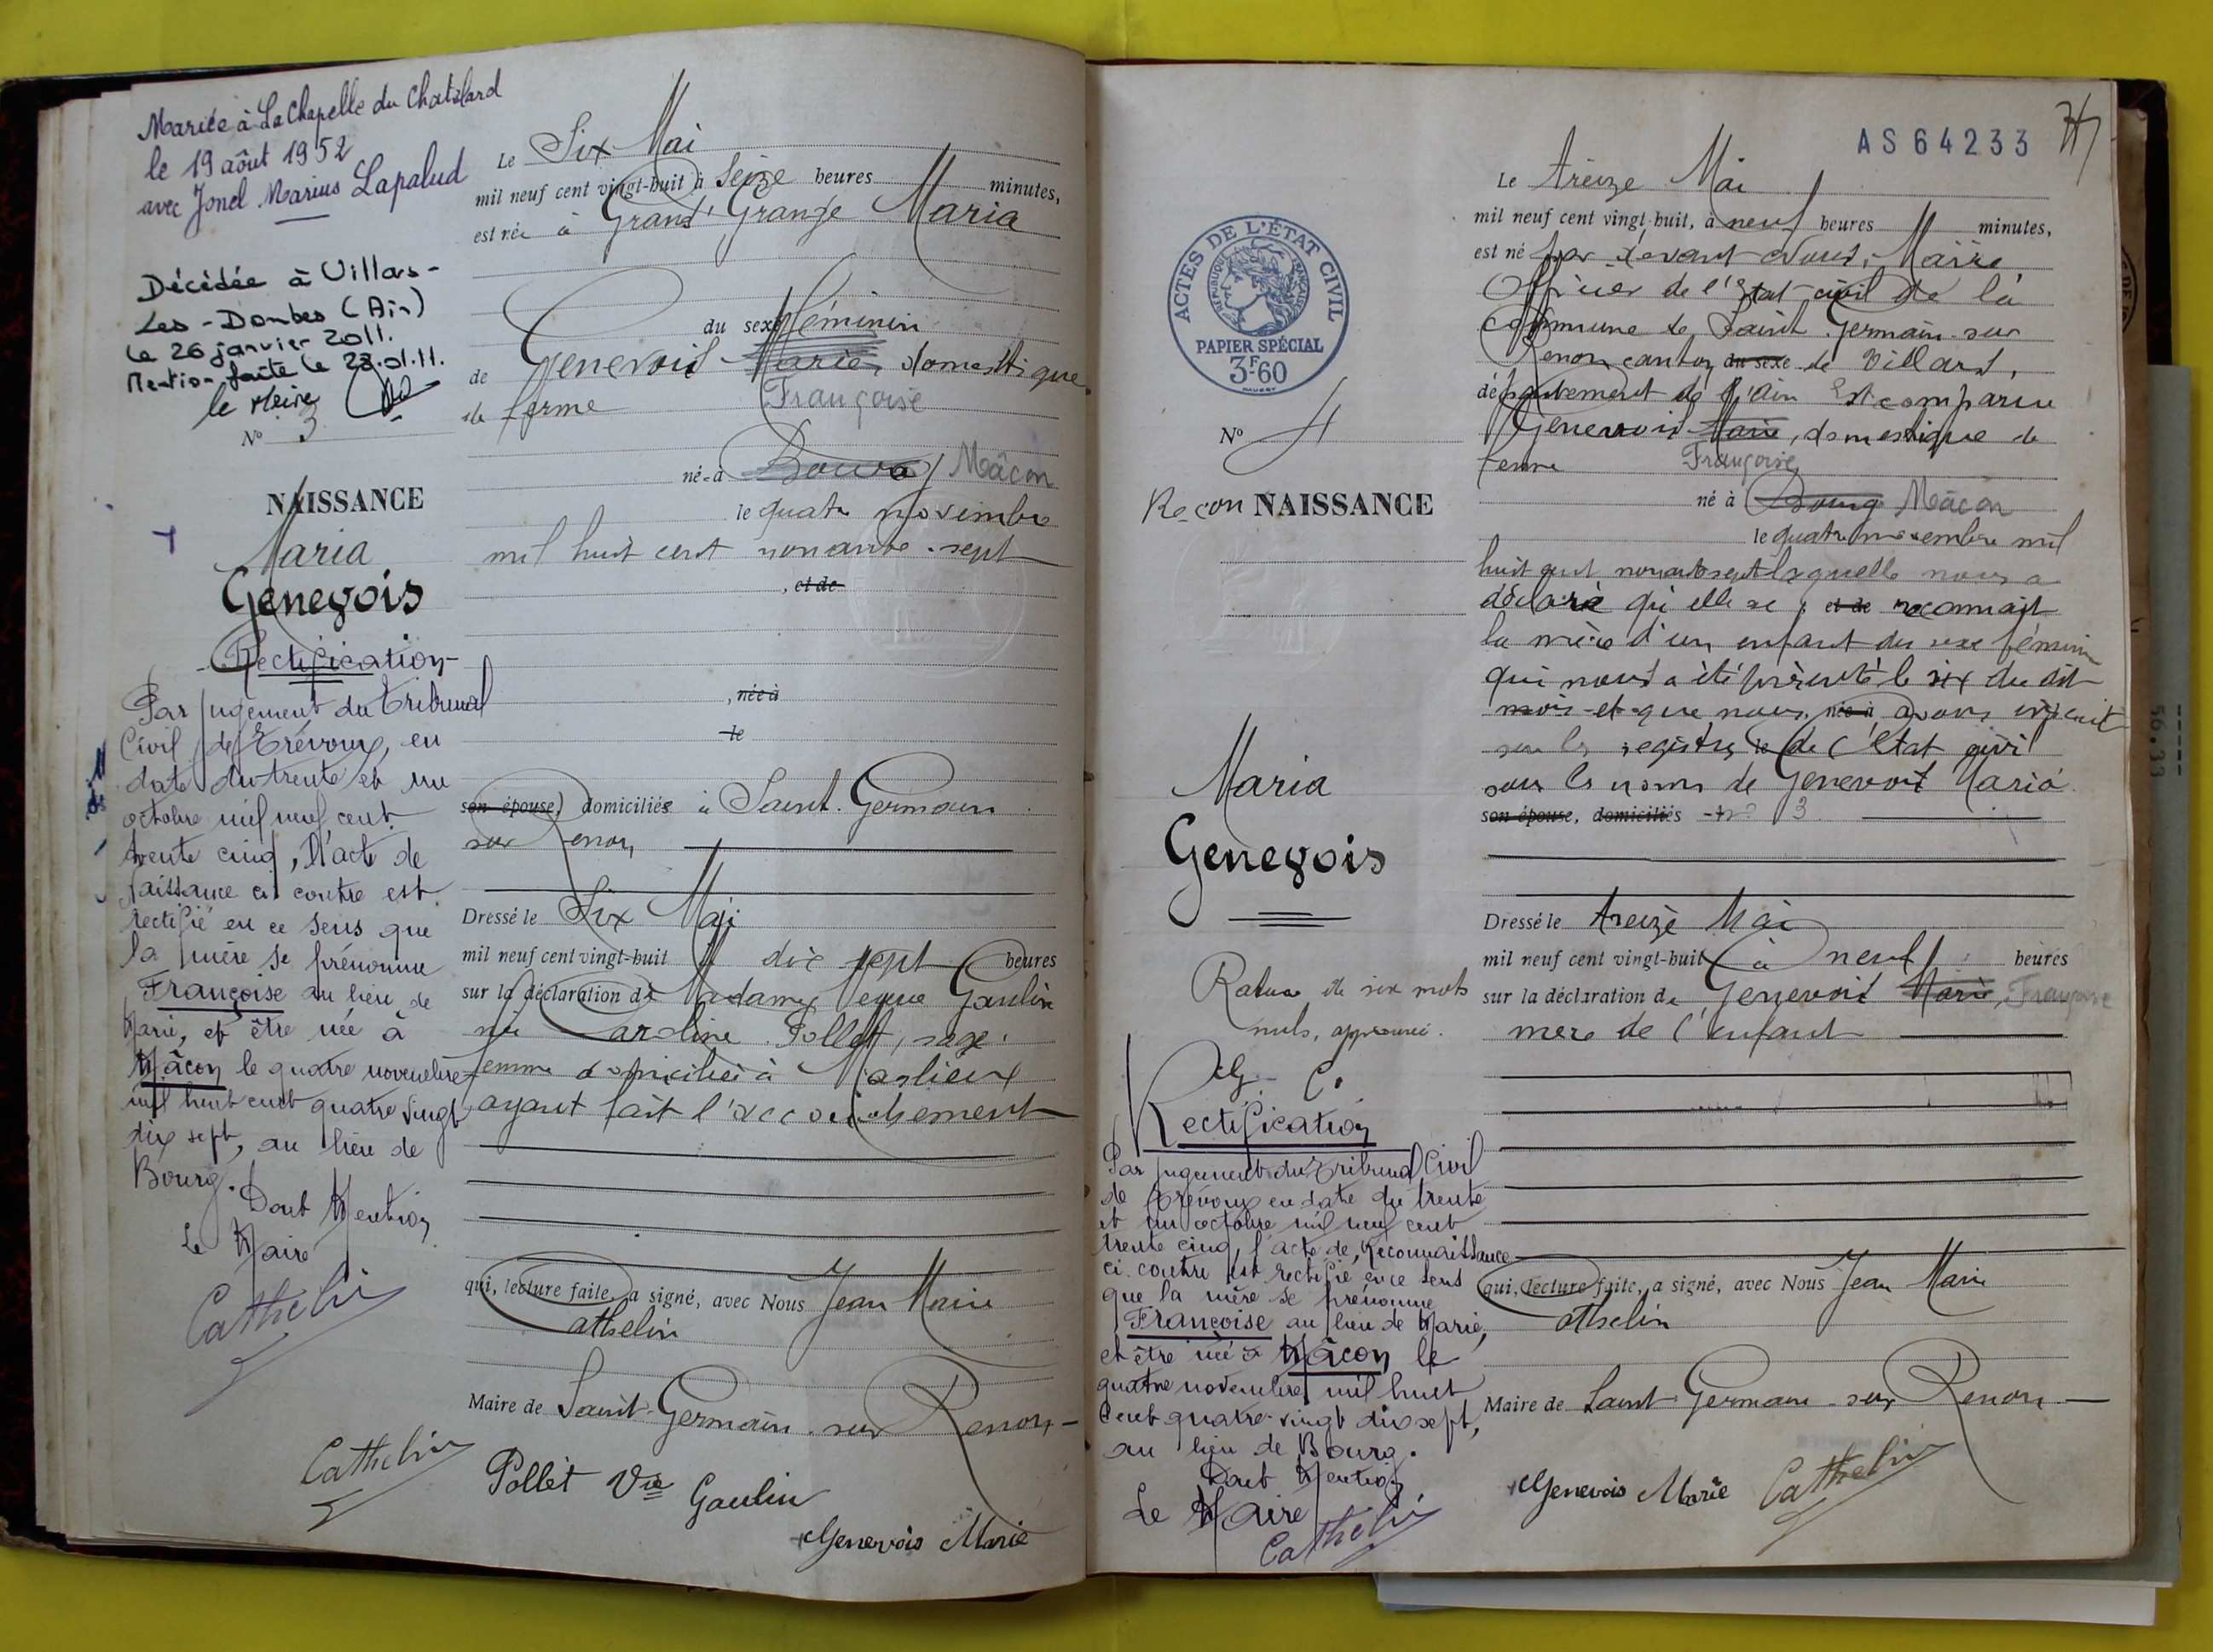 Mariée à La Chapelle du Chatelard
le 19 août 1952
avec Jonel Marius Lapalud
Décédée à Villars-
Les-Dombes (Ain)
le 26 janvier 2011.
Mention faite le 28.01.11.
le Maire
N° 3
NAISSANCE
Maria
Genevois
Rectification
Par jugement du tribunal
Civil de Trévoux, en
date du trente et un
octobre mil neuf cent
trente cinq, l'acte de
Naissance ci contre est
rectifié en ce sens que
la mère se prénomme
Françoise au lieu de
Marie, et être née à
Mâcon le quatre novembre
mil huit cent quatre vingt
dix sept, au lieu de
Bourg.
Dont Mention
Le Maire
Cathelin
Le Six Mai
mil neuf cent vingt-huit à Seize heures minutes,
est née à Grand' Grange Maria
du sexe féminin
de Genevois Marie, domestique
de ferme Françoise
né-à Bourg Mâcon
le quatre novembre
mil huit cent nonante-sept
, et de
, née à
le
son épouse, domiciliés à Saint-Germain
sur Renon
Dressé le Six Mai
mil neuf cent vingt-huit à dix sept heures
sur la déclaration de Madame Veuve Gaulin
née Caroline Pollet, sage
femme domiciliée à Marlieux
ayant fait l'accouchement
qui, lecture faite, a signé, avec Nous Jean Marie
Cathelin
Maire de Saint-Germain-sur Renon
Cathelin
Pollet Vve Gaulin
Genevois Marie
AS 64233
ACTES DE L'ÉTAT CIVIL
RÉPUBLIQUE FRANÇAISE
PAPIER SPÉCIAL
3F60
N° 4
Recon NAISSANCE
Maria
Genevois
Rature de six mots
nuls, approuvé.
G. C.
Rectification
Par jugement du Tribunal Civil
de Trévoux en date du trente
et un octobre mil neuf cent
trente cinq, l'acte de Reconnaissance
ci-contre est rectifié en ce sens
que la mère se prénomme
Françoise au lieu de Marie,
et être née à Mâcon le
quatre novembre mil huit
cent quatre-vingt dix sept,
au lieu de Bourg.
Dont Mention
Le Maire
Cathelin
Le treize Mai
mil neuf cent vingt-huit, à neuf heures minutes,
est né par devant Nous, Maire,
Officier de l'Etat-civil de la
Commune de Saint Germain-sur
Renon canton du sexe de Villars,
département de l'Ain Est comparue
Genevois Marie, domestique de
ferme Françoise
né à Bourg Mâcon
le quatre novembre mil
huit cent nonante sept laquelle nous a
déclaré qu'elle se , et de reconnait
la mère d'un enfant du sexe féminin
qui nous a été présenté le six du dit
mois et que nous, née à avons inscrit
sur les registres le de l'Etat civil
sous les noms de Genevois Maria
son épouse, domiciliés n° 3
Dressé le treize Mai
mil neuf cent vingt-huit à neuf heures
sur la déclaration de Genevois Marie, Françoise
mère de l'enfant
qui, lecture faite, a signé, avec Nous Jean Marie
Cathelin
Maire de Saint-Germain-sur Renon
Genevois Marie Cathelin